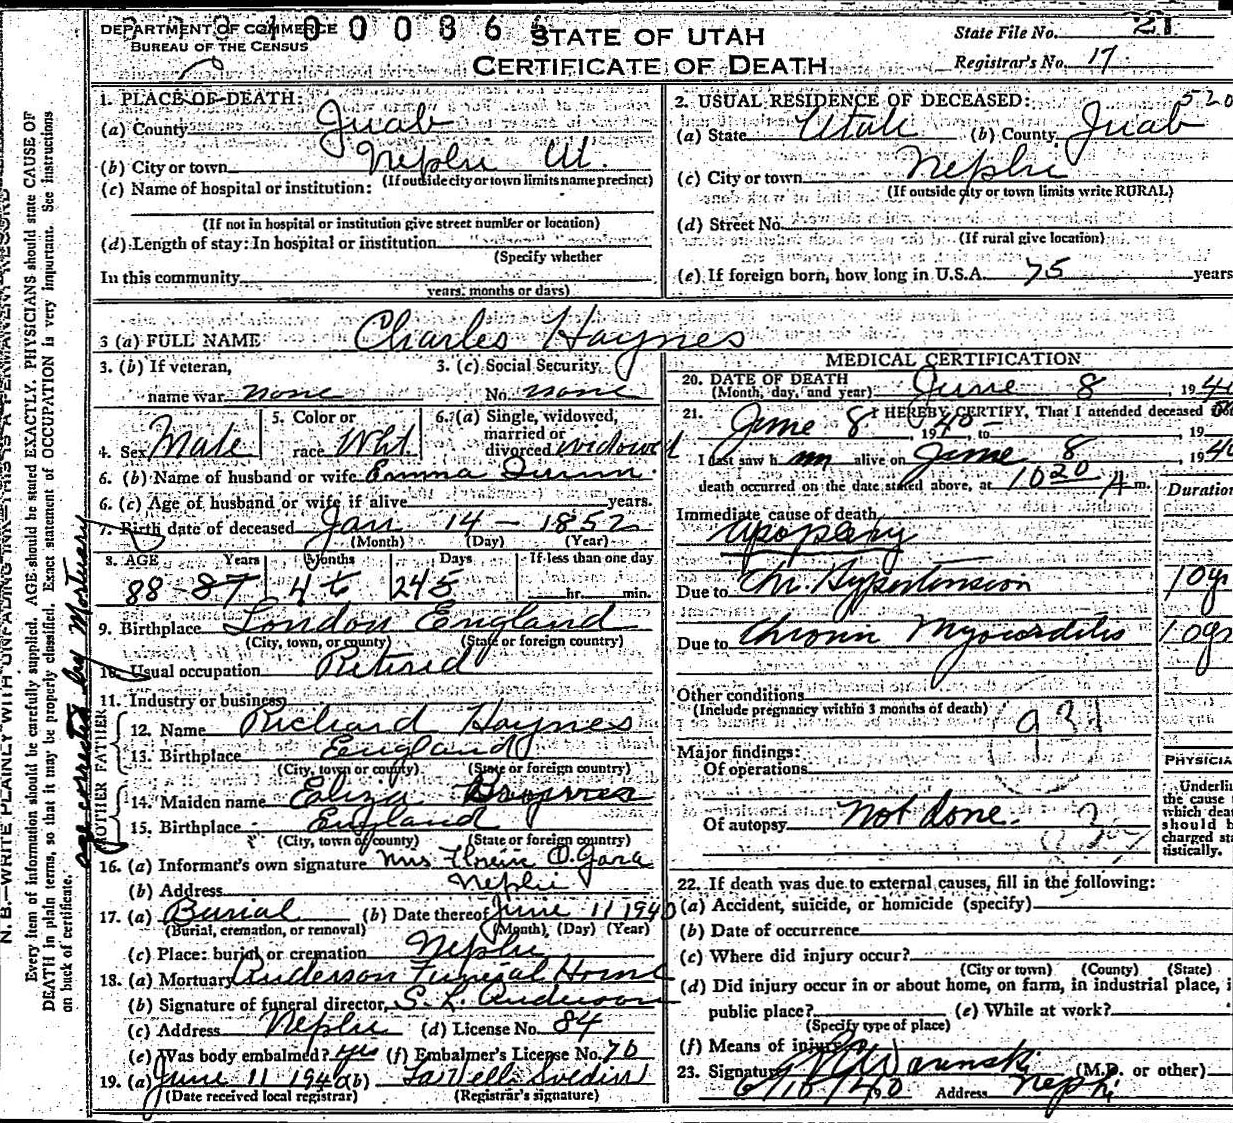 DEPARTMENT OF COMMERCE
BUREAU OF THE CENSUS
STATE OF UTAH
CERTIFICATE OF DEATH
State File No. 21
Registrar's No. 17
1. PLACE OF DEATH:
(a) County Juab
(b) City or town Nephi Ut.
(If outside city or town limits name precinct)
(c) Name of hospital or institution:
(If not in hospital or institution give street number or location)
(d) Length of stay: In hospital or institution
(Specify whether
In this community
years, months or days)
2. USUAL RESIDENCE OF DECEASED: 520
(a) State Utah (b) County Juab
(c) City or town Nephi
(If outside city or town limits write RURAL)
(d) Street No.
(If rural give location)
(e) If foreign born, how long in U.S.A. 75 years
3 (a) FULL NAME Charles Haynes
3. (b) If veteran,
name war none
3. (c) Social Security
No. none
4. Sex Male
5. Color or
race Wht
6. (a) Single, widowed,
married or
divorced widowed
6. (b) Name of husband or wife Emma
6. (c) Age of husband or wife if alive years.
7. Birth date of deceased Jan 14 - 1852
(Month) (Day) (Year)
8. AGE Years Months Days If less than one day
88 - 87 4 245 hr. min.
9. Birthplace London England
(City, town, or county) (State or foreign country)
10. Usual occupation Retired
11. Industry or business
FATHER
12. Name Richard Haynes
13. Birthplace England
(City, town or county) (State or foreign country)
MOTHER
14. Maiden name Eliza
15. Birthplace England
(City, town or county) (State or foreign country)
16. (a) Informant's own signature Mrs O Gara
(b) Address Nephi
17. (a) Burial (b) Date thereof June 11 1940
(Burial, cremation, or removal) (Month) (Day) (Year)
(c) Place: burial or cremation Nephi
18. (a) Mortuary Anderson Funeral Home
(b) Signature of funeral director, S. L. Anderson
(c) Address Nephi (d) License No. 84
(e) Was body embalmed? yes (f) Embalmer's License No. 70
19. (a) June 11 1940 (b)
(Date received local registrar) (Registrar's signature)
MEDICAL CERTIFICATION
20. DATE OF DEATH
(Month, day, and year) June 8, 1940
21. I HEREBY CERTIFY, That I attended deceased
June 8, 1940, to , 19
I last saw h im alive on June 8, 1940
death occurred on the date stated above, at 10 20 A m.
Duration
Immediate cause of death
Apoplexy
Due to Chr. Hypertension 10 yr
Due to Chronic Myocarditis 10 yr
Other conditions
(Include pregnancy within 3 months of death)
Major findings:
Of operations
Of autopsy Not done.
PHYSICIA
Underli
the cause
which dea
should b
charged sta
tistically.
22. If death was due to external causes, fill in the following:
(a) Accident, suicide, or homicide (specify)
(b) Date of occurrence
(c) Where did injury occur?
(City or town) (County) (State)
(d) Did injury occur in or about home, on farm, in industrial place, i
public place? (e) While at work?
(Specify type of place)
(f) Means of injury
23. Signature (M.D. or other)
6/10/40 Address Nephi
N. B.—WRITE PLAINLY WITH UNFADING INK—THIS IS A PERMANENT RECORD
Every item of information should be carefully supplied. AGE should be stated EXACTLY. PHYSICIANS should state CAUSE OF
DEATH in plain terms, so that it may be properly classified. Exact statement of OCCUPATION is very important. See instructions
on back of certificate.
age corrected by Mortuary